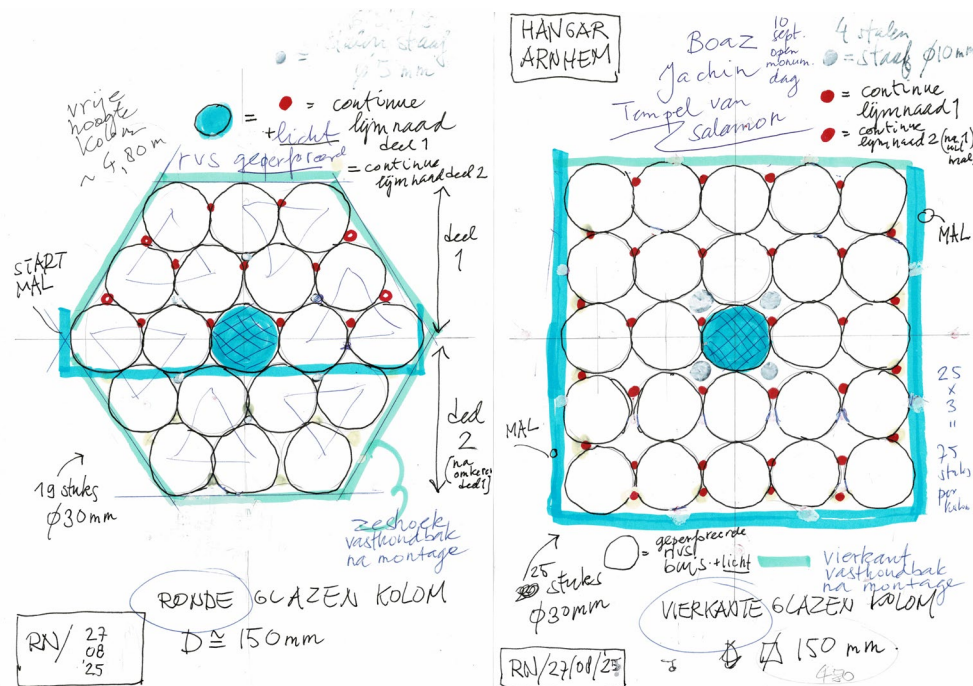 staaf
ø 5 mm
vrije
hoogte
kolom
~ 4,80 m
= continue
lijmnaad
deel 1
= + licht
rvs geperforeerd
= continue
lijmnaad deel 2
START
MAL
deel
1
deel
2
(na
omkeren
deel 1)
19 stuks
ø30mm
zeshoek
vasthoudbak
na montage
RONDE GLAZEN KOLOM
D ≅ 150mm
RN/ 27
08
'25
HANGAR
ARNHEM
Boaz
Jachin
Tempel van
Salomon
10
sept.
open
monum.
dag
4 stalen
= staaf ø10mm
= continue
lijmnaad 1
= continue
lijmnaad 2
MAL
MAL
25
x
3
=
75
stuks
per
kolom
25 stuks
ø30mm
= geperforeerde
rvs
buis + licht
vierkant
vasthoudbak
na montage
VIERKANTE GLAZEN KOLOM
150 mm.
RN/27/08/25